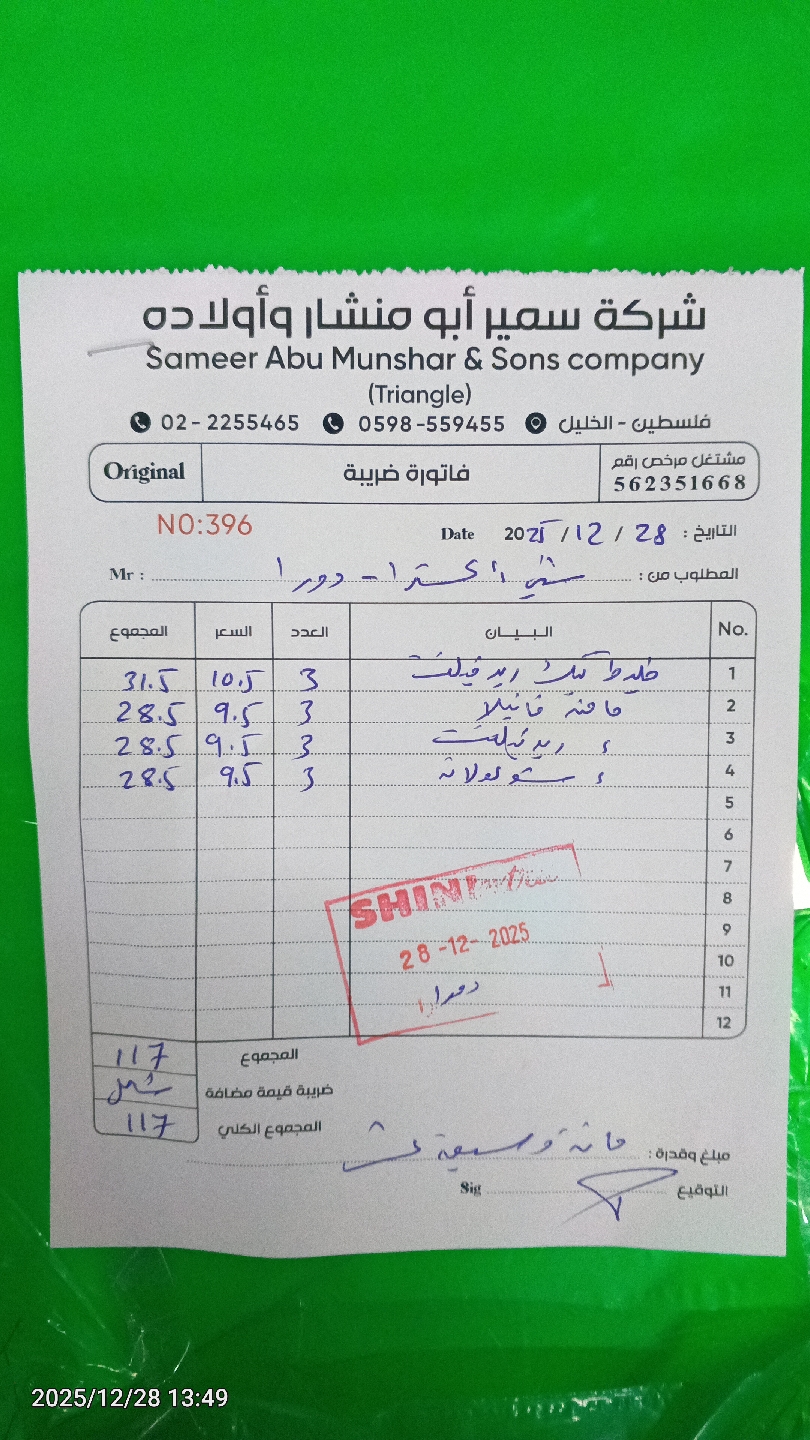 شركة سمير أبو منشار وأولاده
Sameer Abu Munshar & Sons company
(Triangle)
02-2255465 0598-559455 فلسطين - الخليل
Original فاتورة ضريبة مشتغل مرخص رقم
562351668
NO:396
التاريخ : 28 / 12 / 2025 Date
المطلوب من : شني اكسترا - دورا Mr :
No. البيان العدد السعر المجموع
1 خليط كيك ريد فيلفت 3 10.5 31.5
2 مافن فانيلا 3 9.5 28.5
3 ء ريد فيلفت 3 9.5 28.5
4 ء شوكولاته 3 9.5 28.5
5
6
7
8
9
10
11
12
SHINI
28-12-2025
دورا
المجموع 117
ضريبة قيمة مضافة شامل
المجموع الكلي 117
مبلغ وقدرة : مائة وسبعة عشر
التوقيع Sig
2025/12/28 13:49